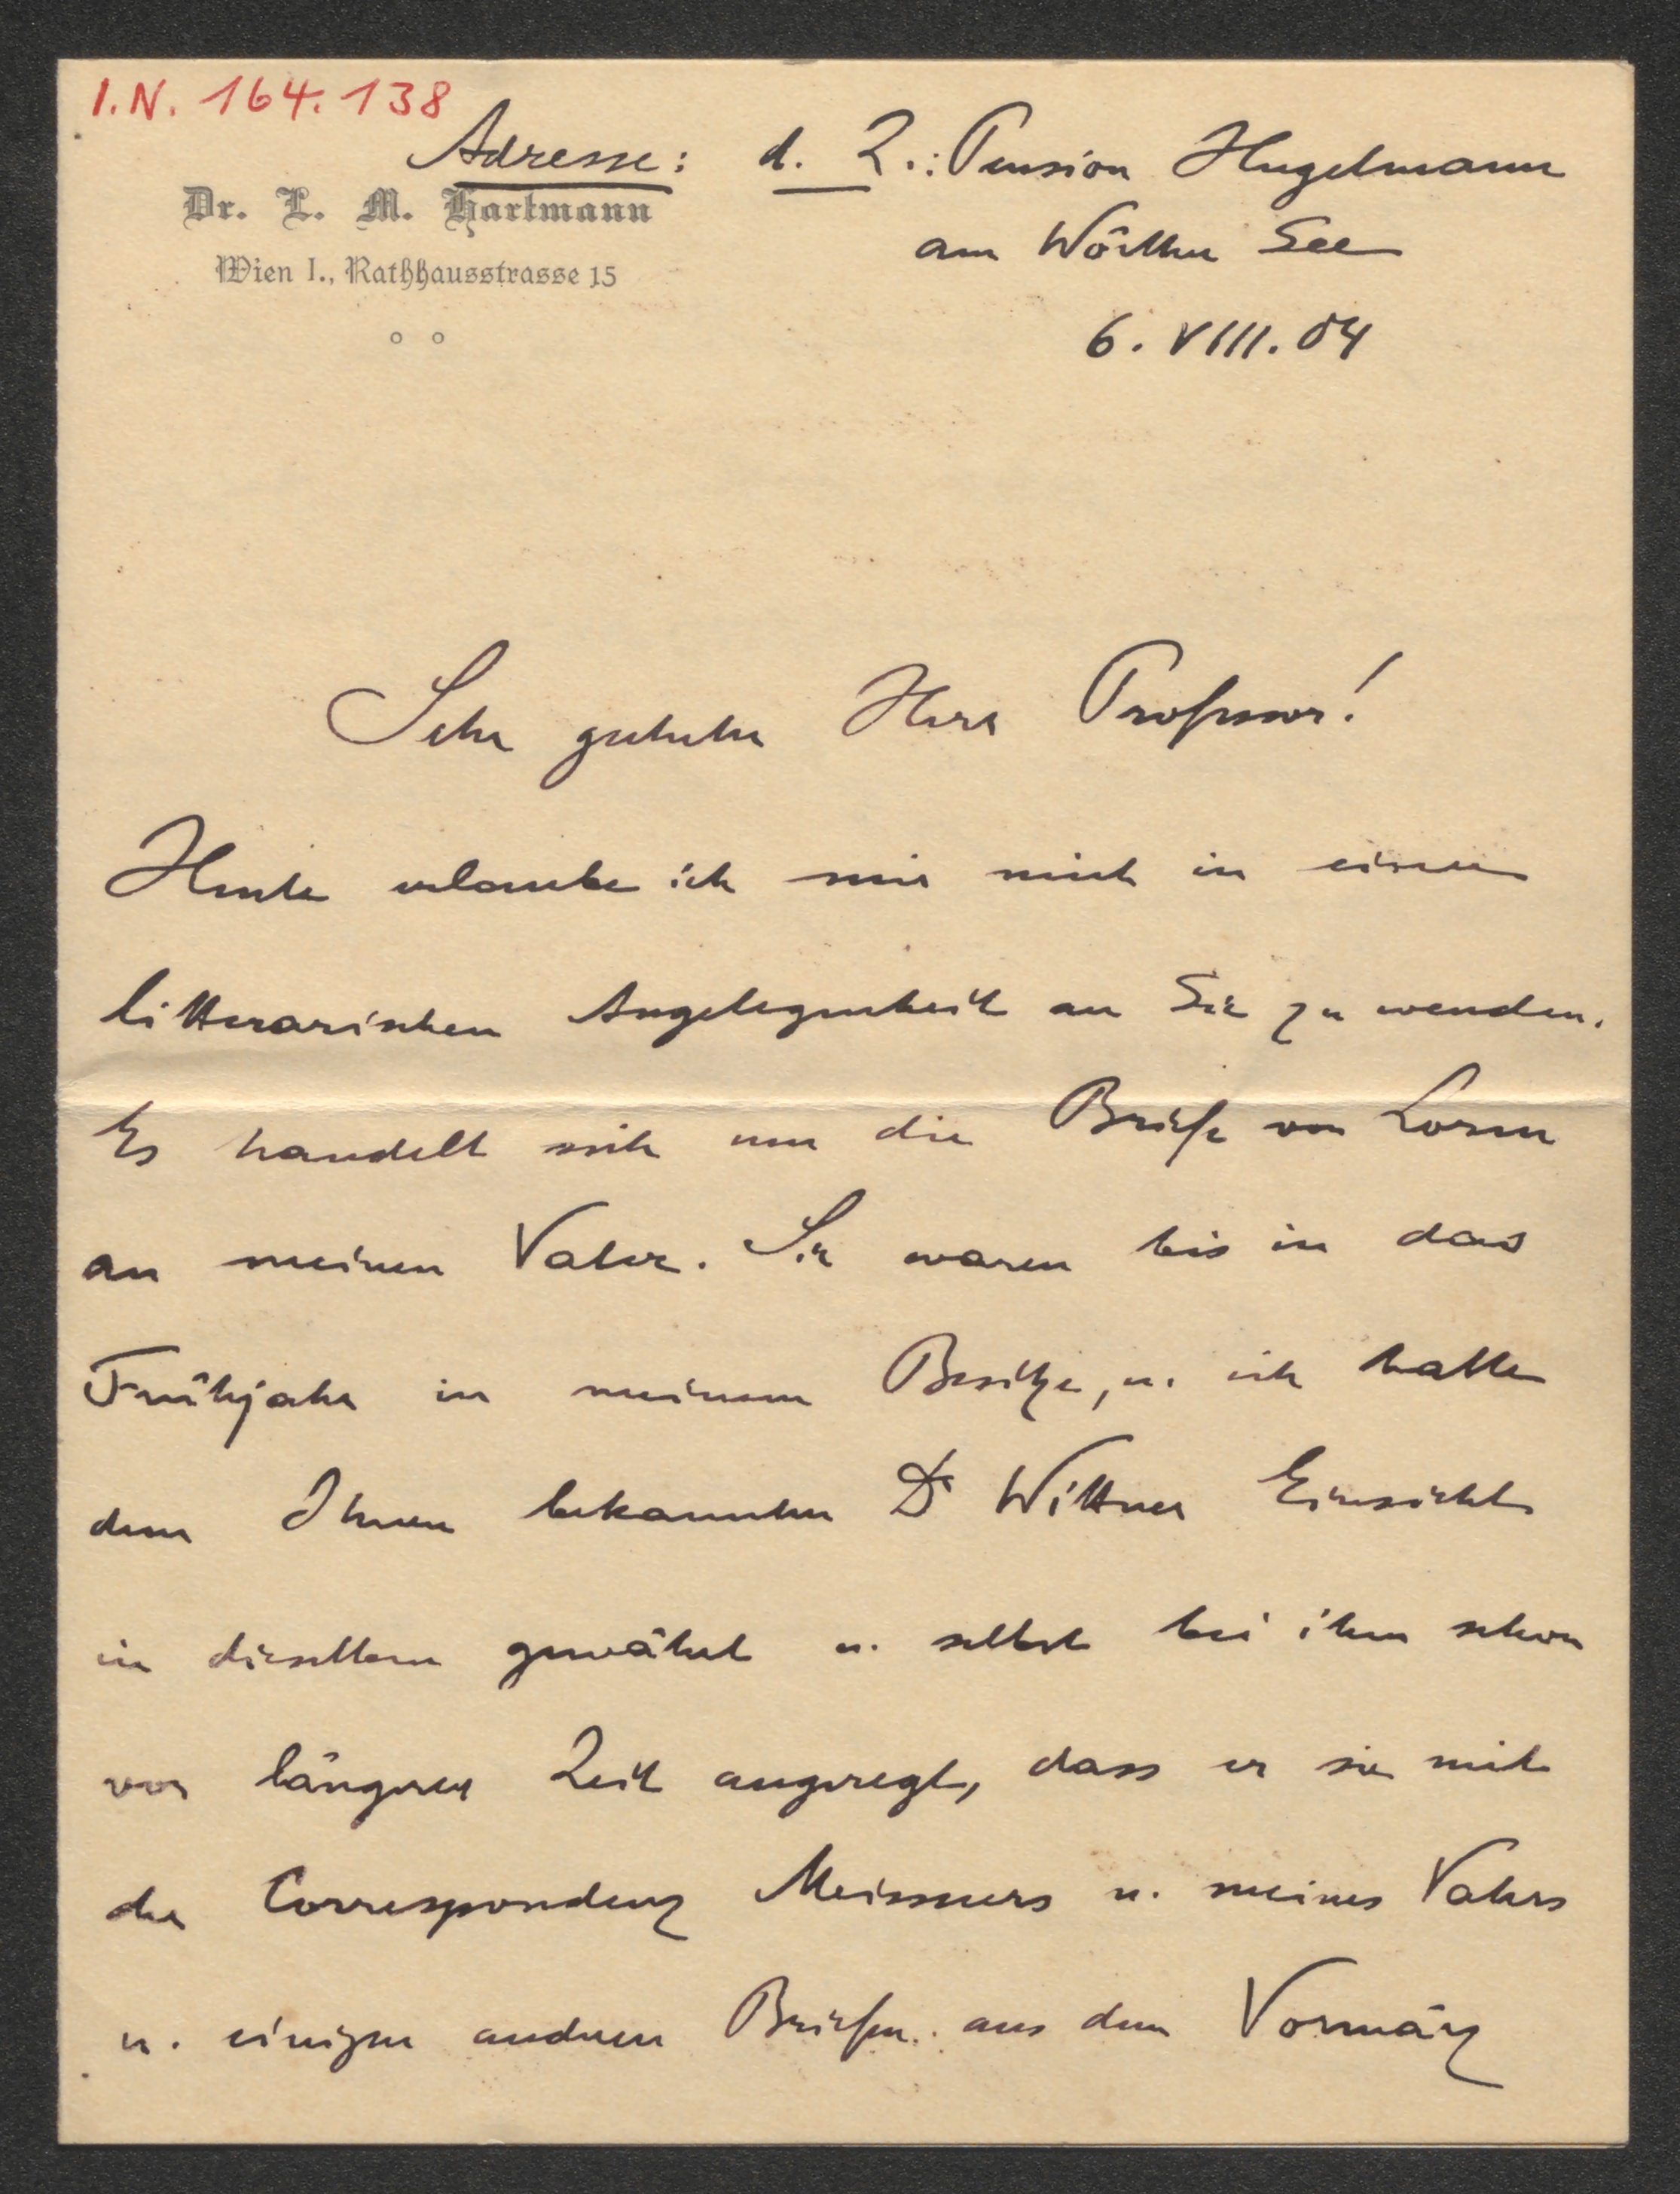 I.N. 164.138
Adresse: d. Z.: Pension Hugelmann
Dr. L. M. Hartmann
am Wörther See
Wien I., Rathhausstrasse 15
6. VIII. 04
Sehr geehrter Herr Professor!
Heute erlaube ich mir mich in einer
litterarischen Angelegenheit an Sie zu wenden.
Es handelt sich um die Briefe von Lorm
an meinen Vater. Sie waren bis in das
Frühjahr in meinem Besitze, u. ich hatte
dem Ihnen bekannten Dr Wittner Einsicht
in dieselben gewährt u. selbst bei ihm schon
vor längerer Zeit angeregt, dass er sie mit
der Correspondenz Meissners u. meines Vaters
u. einigen anderen Briefen aus dem Vormärz